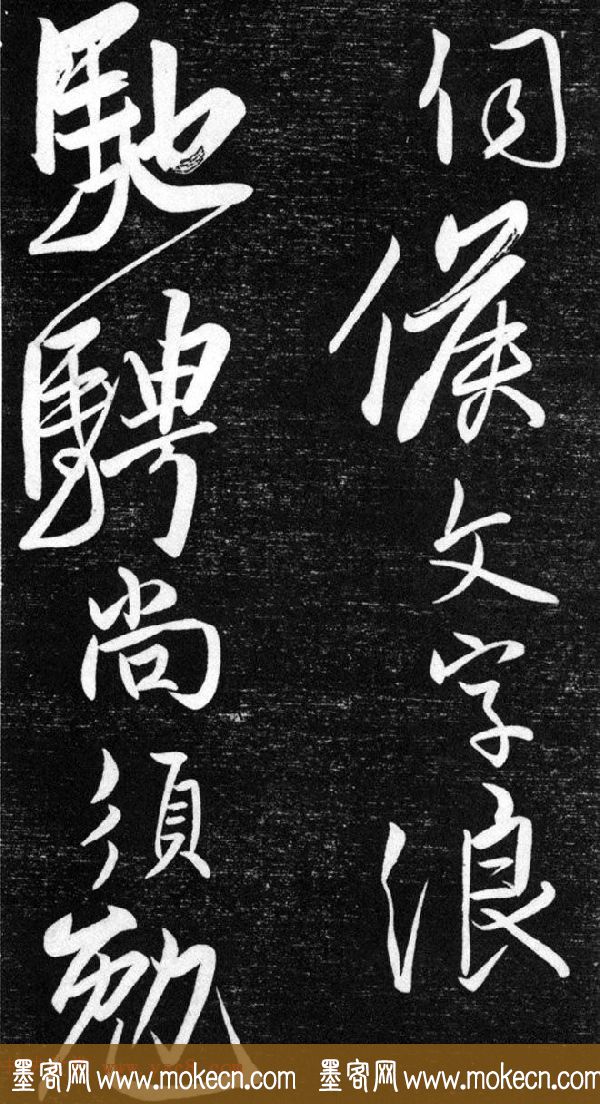 伺候文字浪
馳騁尚須勉
墨客网 www.mokecn.com 墨客网 www.mokecn.com